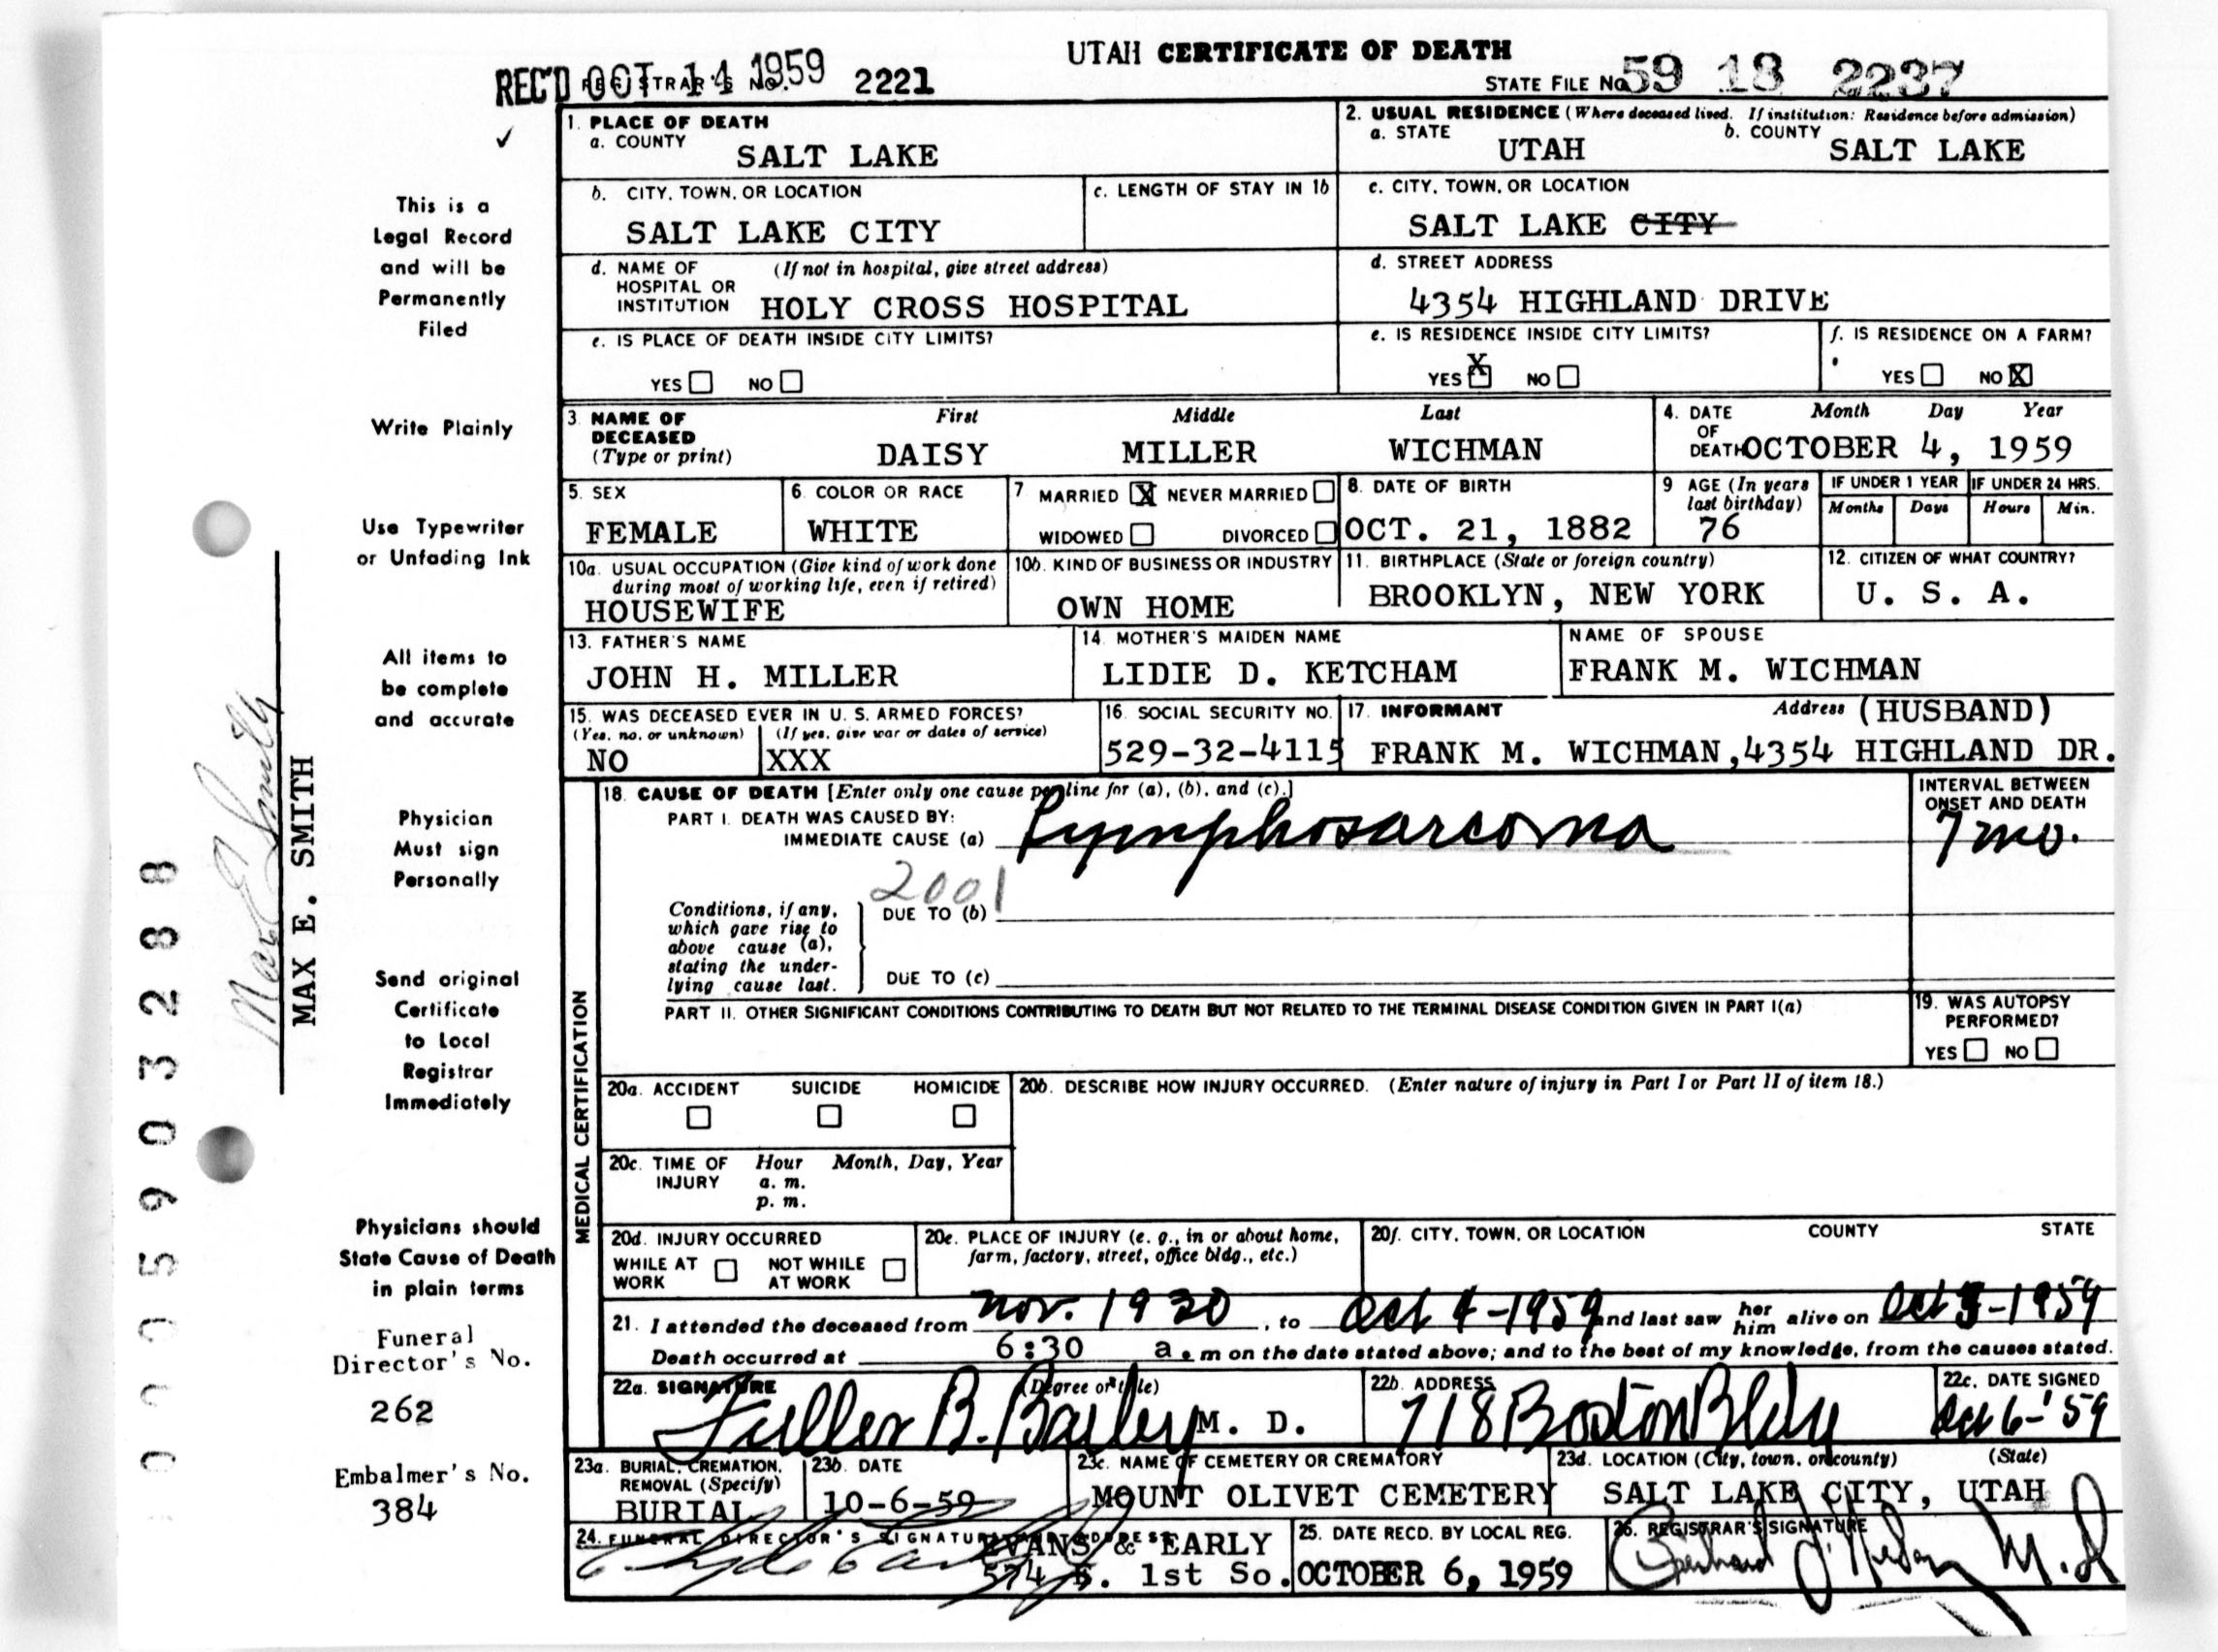 UTAH CERTIFICATE OF DEATH
REC'D OCT 14 1959 2221
STATE FILE No. 59 18 2237
1. PLACE OF DEATH
a. COUNTY SALT LAKE
2. USUAL RESIDENCE (Where deceased lived. If institution: Residence before admission)
a. STATE UTAH b. COUNTY SALT LAKE
b. CITY, TOWN, OR LOCATION
SALT LAKE CITY
c. LENGTH OF STAY IN 1b
c. CITY, TOWN, OR LOCATION
SALT LAKE CITY
d. NAME OF HOSPITAL OR INSTITUTION (If not in hospital, give street address)
HOLY CROSS HOSPITAL
d. STREET ADDRESS
4354 HIGHLAND DRIVE
e. IS PLACE OF DEATH INSIDE CITY LIMITS?
YES NO
e. IS RESIDENCE INSIDE CITY LIMITS?
YES X NO
f. IS RESIDENCE ON A FARM?
YES NO X
3. NAME OF DECEASED (Type or print)
First Middle Last
DAISY MILLER WICHMAN
4. DATE OF DEATH Month Day Year
OCTOBER 4, 1959
5. SEX
FEMALE
6. COLOR OR RACE
WHITE
7 MARRIED X NEVER MARRIED
WIDOWED DIVORCED
8. DATE OF BIRTH
OCT. 21, 1882
9 AGE (In years last birthday)
76
IF UNDER 1 YEAR
Months Days
IF UNDER 24 HRS.
Hours Min.
10a. USUAL OCCUPATION (Give kind of work done during most of working life, even if retired)
HOUSEWIFE
10b. KIND OF BUSINESS OR INDUSTRY
OWN HOME
11. BIRTHPLACE (State or foreign country)
BROOKLYN, NEW YORK
12. CITIZEN OF WHAT COUNTRY?
U. S. A.
13. FATHER'S NAME
JOHN H. MILLER
14. MOTHER'S MAIDEN NAME
LIDIE D. KETCHAM
NAME OF SPOUSE
FRANK M. WICHMAN
15. WAS DECEASED EVER IN U. S. ARMED FORCES?
(Yes, no, or unknown) (If yes, give war or dates of service)
NO XXX
16. SOCIAL SECURITY NO.
529-32-4115
17. INFORMANT Address (HUSBAND)
FRANK M. WICHMAN, 4354 HIGHLAND DR.
MEDICAL CERTIFICATION
18. CAUSE OF DEATH [Enter only one cause per line for (a), (b), and (c).]
PART I. DEATH WAS CAUSED BY:
IMMEDIATE CAUSE (a) Lymphosarcoma
INTERVAL BETWEEN ONSET AND DEATH
7 mo.
2001
Conditions, if any, which gave rise to above cause (a), stating the underlying cause last.
DUE TO (b)
DUE TO (c)
PART II. OTHER SIGNIFICANT CONDITIONS CONTRIBUTING TO DEATH BUT NOT RELATED TO THE TERMINAL DISEASE CONDITION GIVEN IN PART I(a)
19. WAS AUTOPSY PERFORMED?
YES NO
20a. ACCIDENT SUICIDE HOMICIDE
20b. DESCRIBE HOW INJURY OCCURRED. (Enter nature of injury in Part I or Part II of item 18.)
20c. TIME OF INJURY Hour Month, Day, Year
a. m.
p. m.
20d. INJURY OCCURRED
WHILE AT WORK NOT WHILE AT WORK
20e. PLACE OF INJURY (e. g., in or about home, farm, factory, street, office bldg., etc.)
20f. CITY, TOWN, OR LOCATION COUNTY STATE
21. I attended the deceased from Nov. 1930, to Oct 4-1959 and last saw her him alive on Oct 3-1959
Death occurred at 6:30 a.m on the date stated above; and to the best of my knowledge, from the causes stated.
22a. SIGNATURE (Degree or title)
Fuller B. Bailey M. D.
22b. ADDRESS
718 Boston Bldg
22c. DATE SIGNED
Oct 6-'59
23a. BURIAL, CREMATION, REMOVAL (Specify)
BURIAL
23b. DATE
10-6-59
23c. NAME OF CEMETERY OR CREMATORY
MOUNT OLIVET CEMETERY
23d. LOCATION (City, town, or county) (State)
SALT LAKE CITY, UTAH
24. FUNERAL DIRECTOR'S SIGNATURE AND ADDRESS
EVANS & EARLY
574 E. 1st So.
25. DATE RECD. BY LOCAL REG.
OCTOBER 6, 1959
26. REGISTRAR'S SIGNATURE
M.D
This is a
Legal Record
and will be
Permanently
Filed
Write Plainly
Use Typewriter
or Unfading Ink
All items to
be complete
and accurate
Physician
Must sign
Personally
Send original
Certificate
to Local
Registrar
Immediately
Physicians should
State Cause of Death
in plain terms
Funeral
Director's No.
262
Embalmer's No.
384
Max E Smith
MAX E. SMITH
0005903288